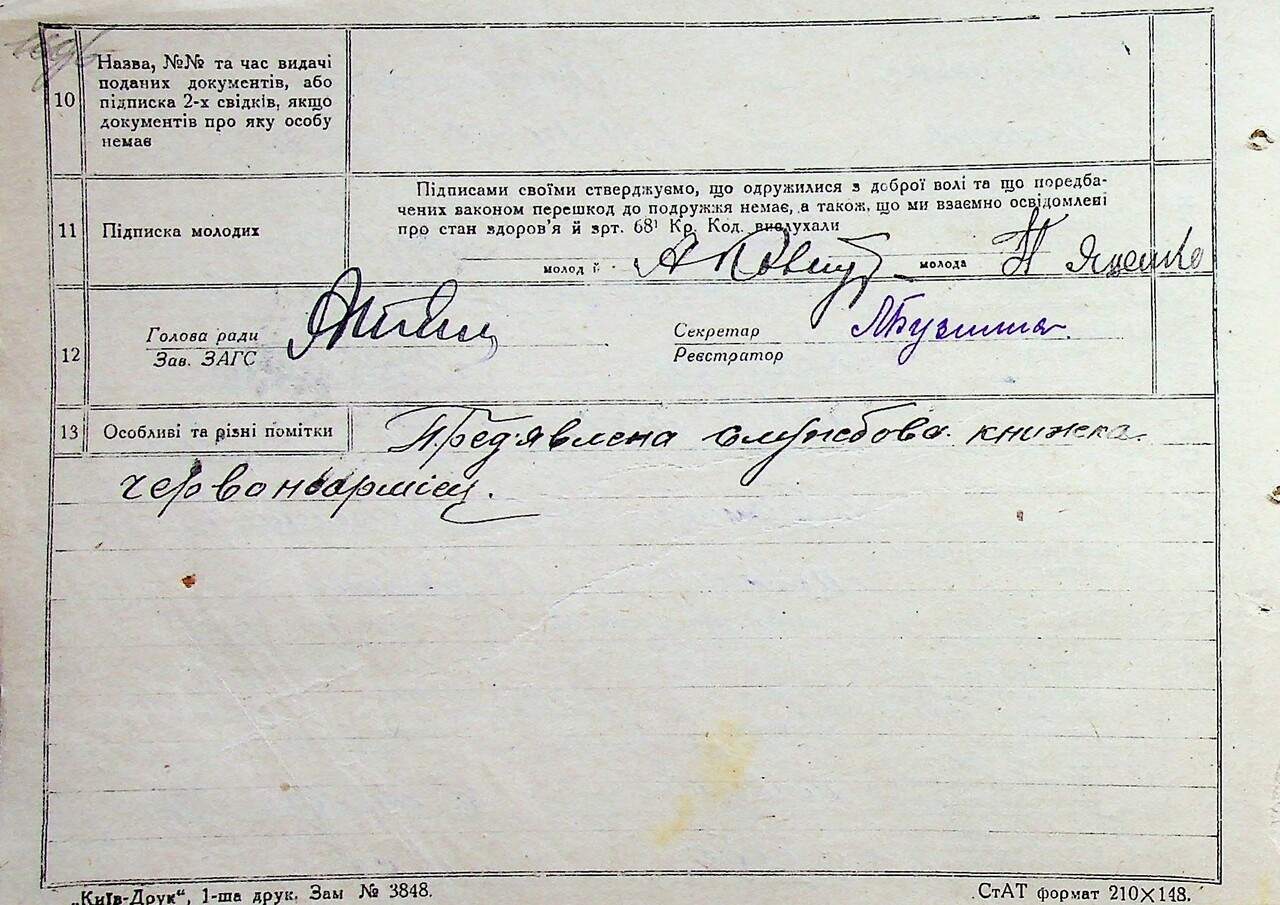 10
Назва, №№ та час видачі
поданих документів, або
підписка 2-х свідків, якщо
документів про яку особу
немає
11
Підписка молодих
Підписами своїми стверджуємо, що одружилися з доброї волі та що поредба-
чених ваконом перешкод до подружжя немає, а також, що ми взаємно освідомлені
про стан здоров'я й зрт. 68¹ Кр. Код. вислухали
молодй
молода Яценко
12
Голова ради
Зав. ЗАГС
Секретар
Реєстратор
13
Особливі та різні помітки
Пред'явлена службова книжка
червоноармійц.
„Київ-Друк“, 1-ша друк. Зам № 3848.
СтАТ формат 210×148.